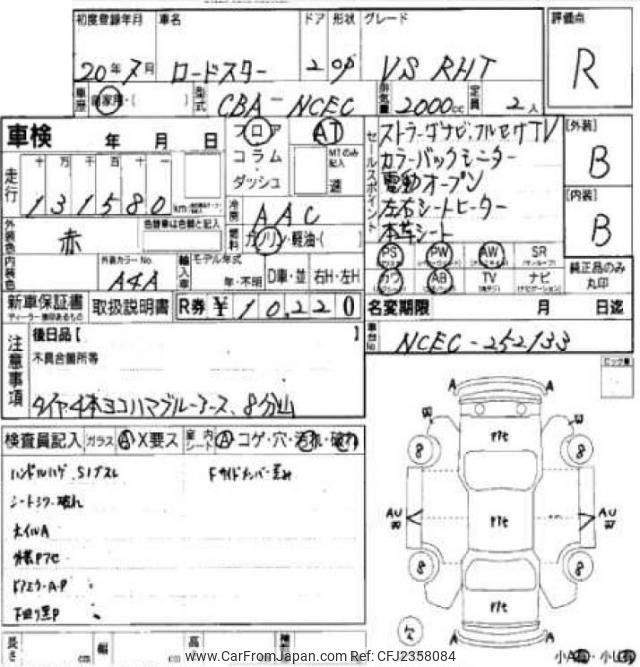 初度登録年月 車名 ドア 形状 グレード 評価点
20年7月 ロードスター 2 OP VS RHT R
車歴 自家用・( ) 型式 CBA-NCEC 排気量 2000cc 定員 2人
車検 年 月 日 フロア AT
コラム MTのみ記入
ダッシュ 速
走行 十 万 千 百 十 一
131580 km
冷房 AAC
外装色 赤 色替車は元色と記入 燃料 ガソリン・軽油・( )
内装色 外装カラーNo. A4A 輸入車 モデル年式 年・不明 D車・並 右H・左H
セールスポイント ストラーダナビ、フルセグTV
カラーバックモニター
電動オープン
左右シートヒーター
本革シート
[外装] B
[内装] B
PS PW AW SR
AB TV ナビ
純正品のみ丸印
新車保証書 取扱説明書 R券 ¥10,220
ディーラー捺印あるもの
名変期限 月 日迄
車台No. NCEC-252133
注意事項 後日品[ ]
不具合箇所等
タイヤ4本ヨコハマブルーアース、8分山
検査員記入 ガラス A X要ス 室内 シート A コゲ・穴・汚れ・破れ
ハンドルハゲ、
シートスワ・破れ
ホイルA
ドアミラーA-P
下回り黒P
A A
W W
P1e
8 8
AU W P1e AU W
8 8
P1e
A A
小A 小U
www.CarFromJapan.com Ref: CFJ2358084